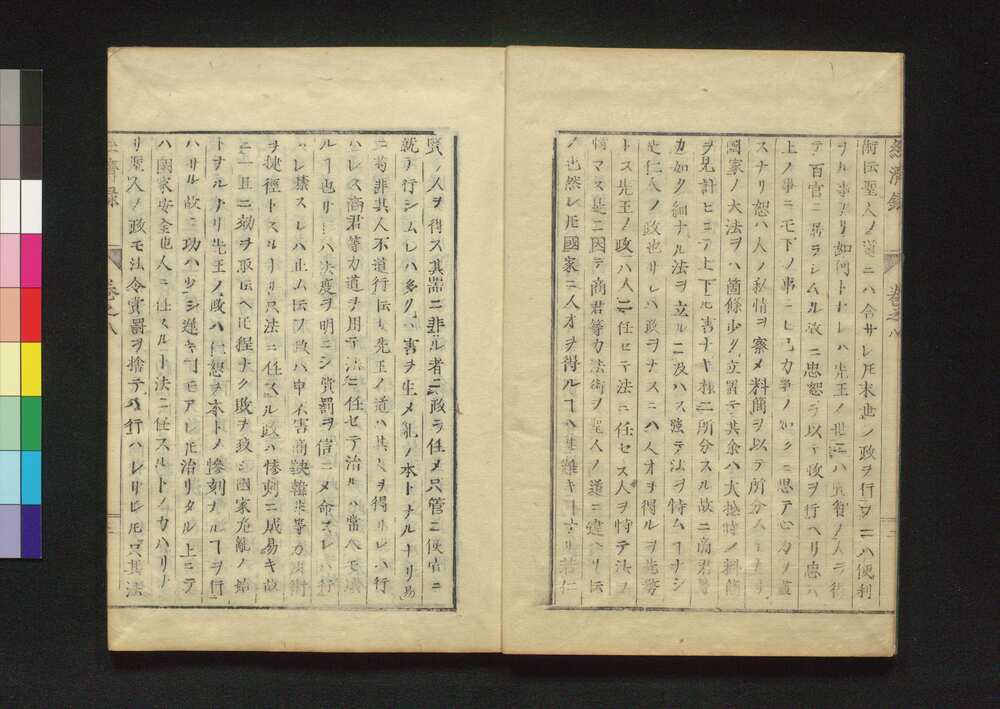 経済録 巻之八
術伝聖人ノ道ニハ合サレ𪜈末世ノ政ヲ行フニハ便利
ナル事アリ如何トナレハ先王ノ世ニハ賢者ノ人ヲ得
テ百官ニ居ラシムル故ニ忠恕ヲ以テ政ヲ行ヘリ忠ハ
上ノ事ニモ下ノ事ニモ己カ事ノ如クニ思テ心力ヲ盡
スナリ恕ハ人ノ私情ヲ察メ料簡ヲ以テ所分
國家ノ大法ヲハ箇條少ク立置テ其余ハ大抵時ノ料簡
ヲ見計ヒニテ上下ル害ナキ様ニ所分スル故ニ商君等
カ如ク細ナル法ヲ立ルニ及ハス強テ法ヲ恃ムヿナシ
是仁人ノ政也サレハ政ヲナスニハ人才ヲ得ルヲ先務
トス先王ノ政ハ人ニ任セテ法ニ任セス人ヲ恃テ法ヲ
恃マス是ニ因テ商君等カ法術ヲ聖人ノ道ニ違ヘリ伝
ノ也然レ𪜈國家ニ人才ヲ得ルヿハ甚難キヿナリ若仁
賢ノ人ヲ得ス其器ニ非ル者ニ政ヲ任メ只管ニ便宜ニ
就テ行シムレハ多クハ害ヲ生メ乱ノ本トナルナリ易
ニ苟非其人不道行伝リ先王ノ道ハ其人ヲ得サレハ行
ハレス商君等カ道ヲ用テ法ニ任セテ治ルハ當ヘモ成
ルヿ也サレハ法度ヲ明ニシ賞罰ヲ信ニメ命スレハ行
ハレ禁スレハ止ム伝フ政ハ申不害商鞅韓非等カ法術
ヲ捷徑トスルナリ只法ニ任スル政ハ惨刻ニ成易キ故
ニ一旦ニ効ヲ取伝ヘ𪜈程ナク敗ヲ致シ國家危乱ノ始
トナルナリ先王ノ政ハ仁恕ヲ本トメ惨刻ナルヿヲ行
ハサル故ニ功ハ少シ遅キ司モアレ𪜈治リタル上ニテ
ハ國家安全也人ニ任スルト法ニ任スルトノカハリナ
リ聖人ノ政モ法令賞罰ヲ捨テハ行ハレサレ𪜈只其法
経済録 巻之八